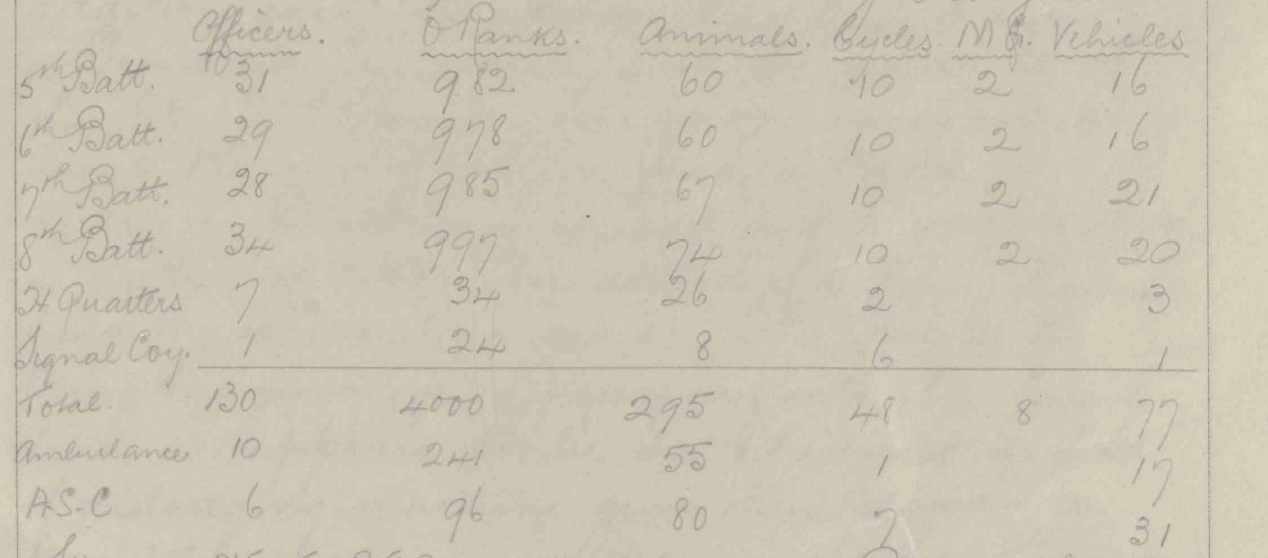 Officers. O Ranks. Animals. Cycles M G. Vehicles
5th Batt. 31 982 60 10 2 16
6th Batt. 29 978 60 10 2 16
7th Batt. 28 985 67 10 2 21
8th Batt. 34 997 74 10 2 20
H Quarters 7 34 26 2 3
Signal Coy. 1 24 8 6 1
Total 130 4000 295 48 8 77
Ambulance 10 241 55 1 17
A.S.C 6 96 80 7 31